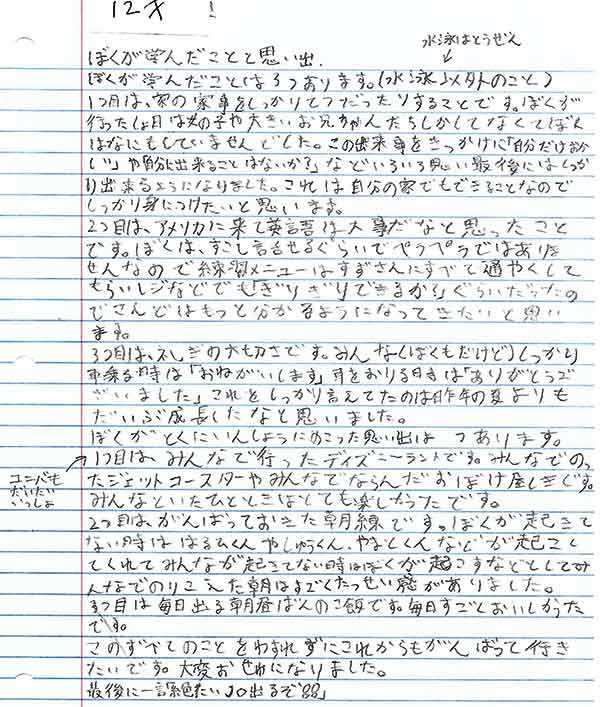 12才
水泳はとうぜん
ぼくが学んだことと思い出.
ぼくが学んだことは3つあります。(水泳以外のこと)
1つ目は、家の家事をしっかりてつだったりすることです。ぼくが
行ったしょ日は女の子や大きいお兄ちゃんたちしかしてなくてぼくは
なにもしていませんでした。この出来事をきっかけに「自分だけおか
しい」や「自分に出来ることはないか?」などいろいろ思い最後にはしっか
り出来るようになりました。これは自分の家でもできることなので
しっかり身につけたいと思います。
2つ目は、アメリカに来て英語は大事だなと思ったこと
です。ぼくは、すこし話せるぐらいでペラペラではありま
せんなので練習メニューはすずさんにすべて通やくして
もらいレジなどでも「ぎりぎりできるか?」ぐらいだったの
でこんどはもっと分かるようになってきたいと思い
ます。
3つ目は、れいぎの大切さです。みんな(ぼくもだけど)しっかり
車乗る時は「おねがいします」車をおりる時は「ありがとうご
ざいました」これをしっかり言えてたのは昨年の夏よりも
だいぶ成長したなと思いました。
ぼくがとくにいんしょうにのこった思い出は つあります。
1つ目は、みんなで行ったディズニーランドです。みんなでのっ
たジェットコースターやみんなでならんだおばけ屋しきです。
みんなといたひとときはとても楽しかったです。
ユニバも
だいたい
いっしょ
2つ目は、がんばっておきた朝練です。ぼくが起きて
ない時は はるとくんやしゅうくん、やまとくんなどが起こし
てくれてみんなが起きてない時はぼくが起こすなどしてみ
んなでのりこえた朝はすごくたっせい感がありました。
3つ目は毎日出る朝昼ばんのご飯です。毎日すごくおいしかった
です。
このすべてのことをわすれずにこれからもがんばって行き
たいです。大変おせわになりました。
最後に一言絶たいJO出るぞ